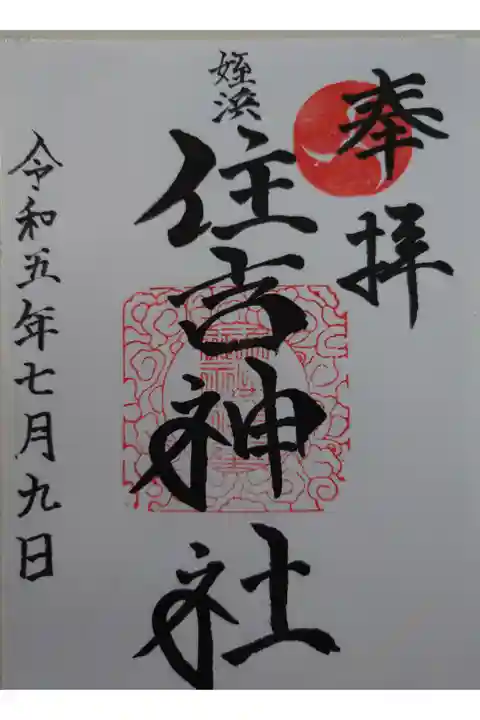 奉拝
姪浜
住吉神社
令和五年七月九日